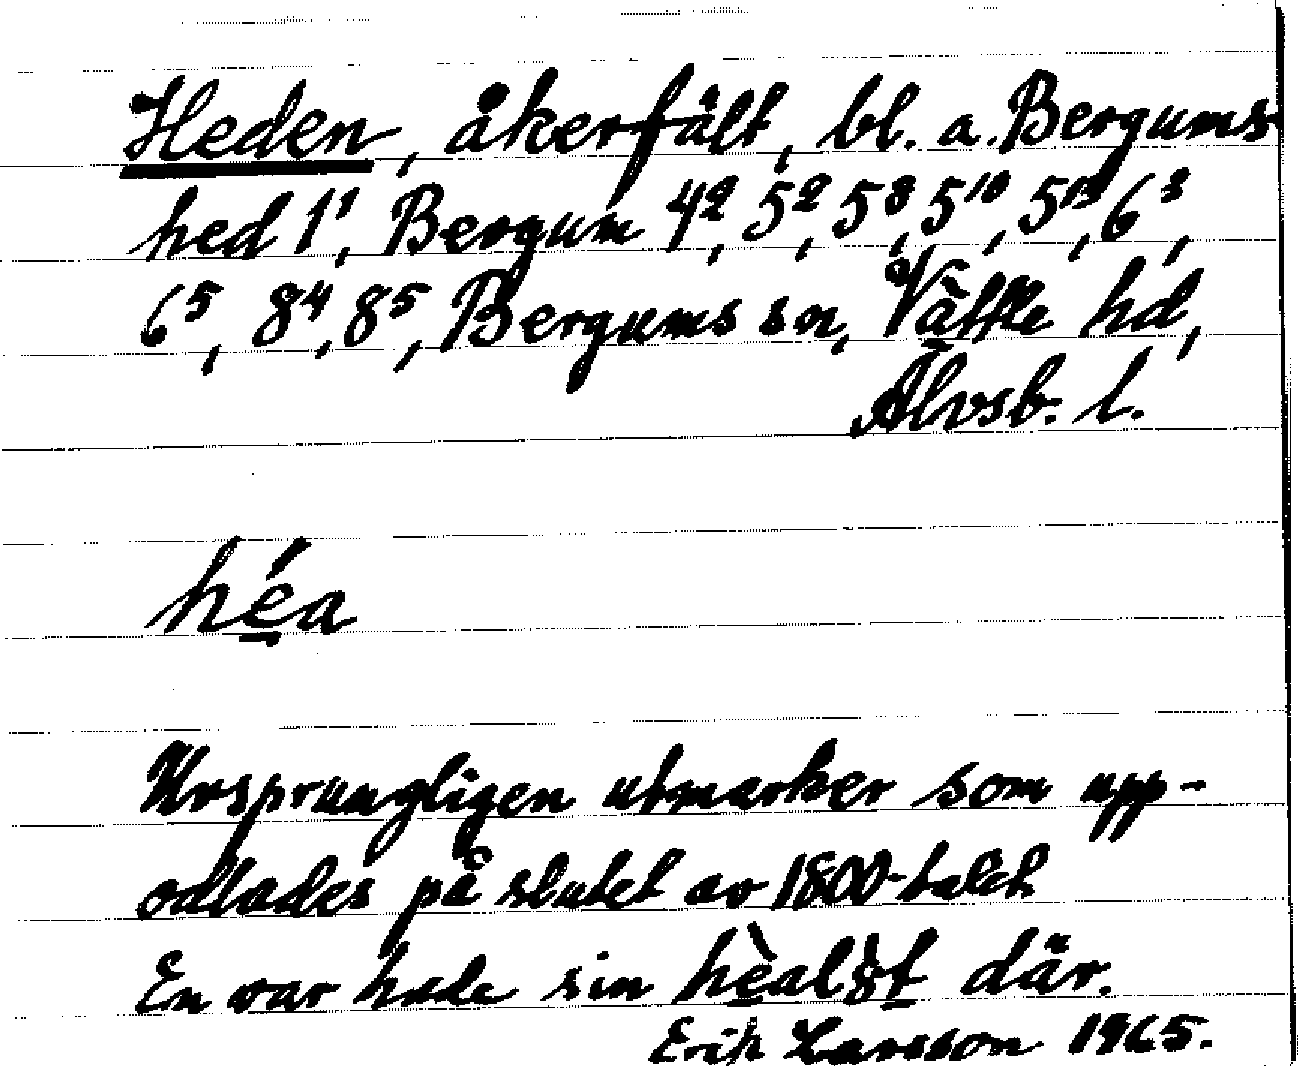 Heden, åkerfält, bl. a. Bergums
hed 1¹, Bergum 4², 5², 5⁸, 5¹⁰, 5¹³, 6³,
6⁵, 8⁴, 8⁵, Bergums sn, Vättle hd,
Älvsb. l.
héa
Ursprungligen utmarker som upp-
odlades på slutet av 1800-talet
En var hade sin där.
Erik Larsson 1965.